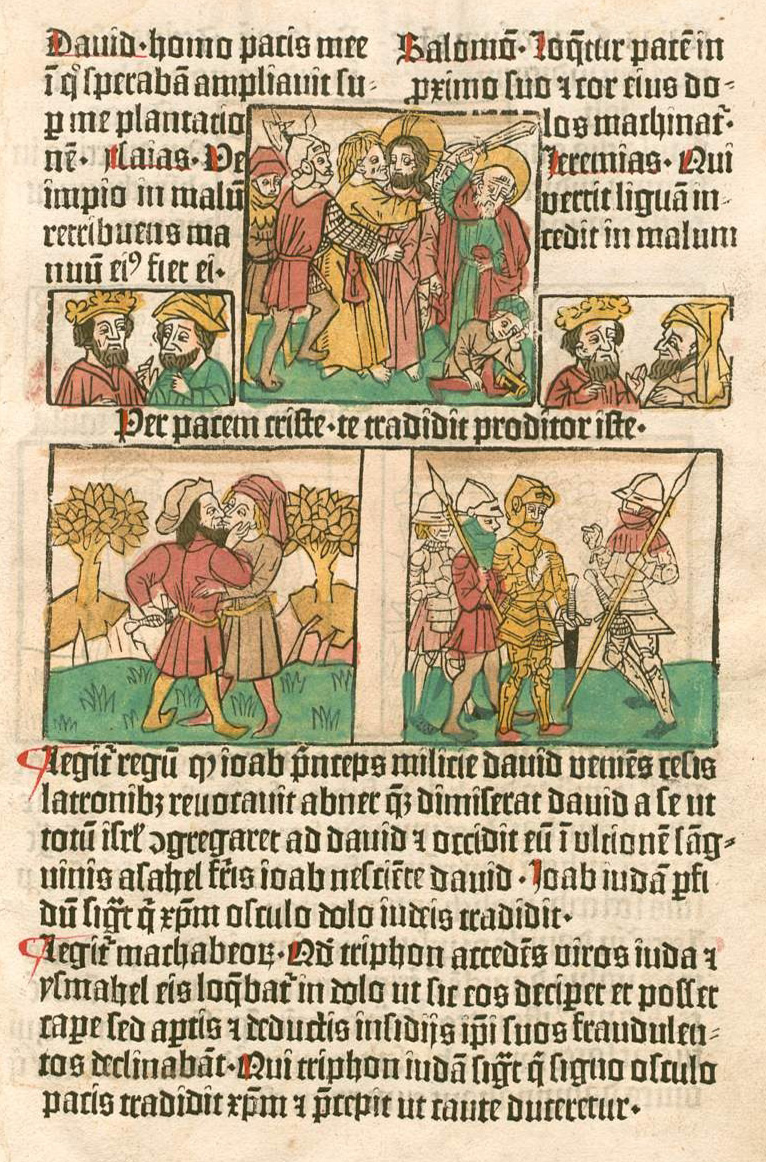 Dauid·homo pacis mee
ī qͦ sperabā ampliauit su⸗
ꝑ me plantacio
nē· Isaias· Ve
impio in malū
retribucus ma
nuū eiꝰ fiet ei·
Salomō· Loq̄tur pacē in
ꝓximo suo ⁊ cor eius do⸗
los machinat᷑·
Jeremias· Qui
vertit liguā in⸗
cedit in malum
Per pacem criste·te tradidit proditor iste·
Legit᷑ regū ꝙ ioab p̄nceps milicie dauid veniēs cesis
latronibꝫ reuocauit abner qꝫ dimiserat dauid a se ut
totū isrl̄ ꝯgregaret ad dauid ⁊ occidit eū ī vlcionē sāg⸗
uinis asahel fr̄is ioab nesciēte dauid · Joab iudā ꝑfi
dū sigt᷑ q̄ xp̄m osculo dolo iudeis tradidit·
Legit᷑ machabeoꝝ· Qd̄ triphon accedēs viros iuda ⁊
ysmahel eis loq̄bat᷑ in dolo ut sic eos deciꝑet et posset
caꝑe sed aꝑtis ⁊ deductis insidijs ip̄i suos fraudulen⸗
tos declinabāt· Qui triphon iudā sigt᷑ q̄ signo osculo
pacis tradidit xp̄m ⁊ p̄cepit ut caute duceretur·